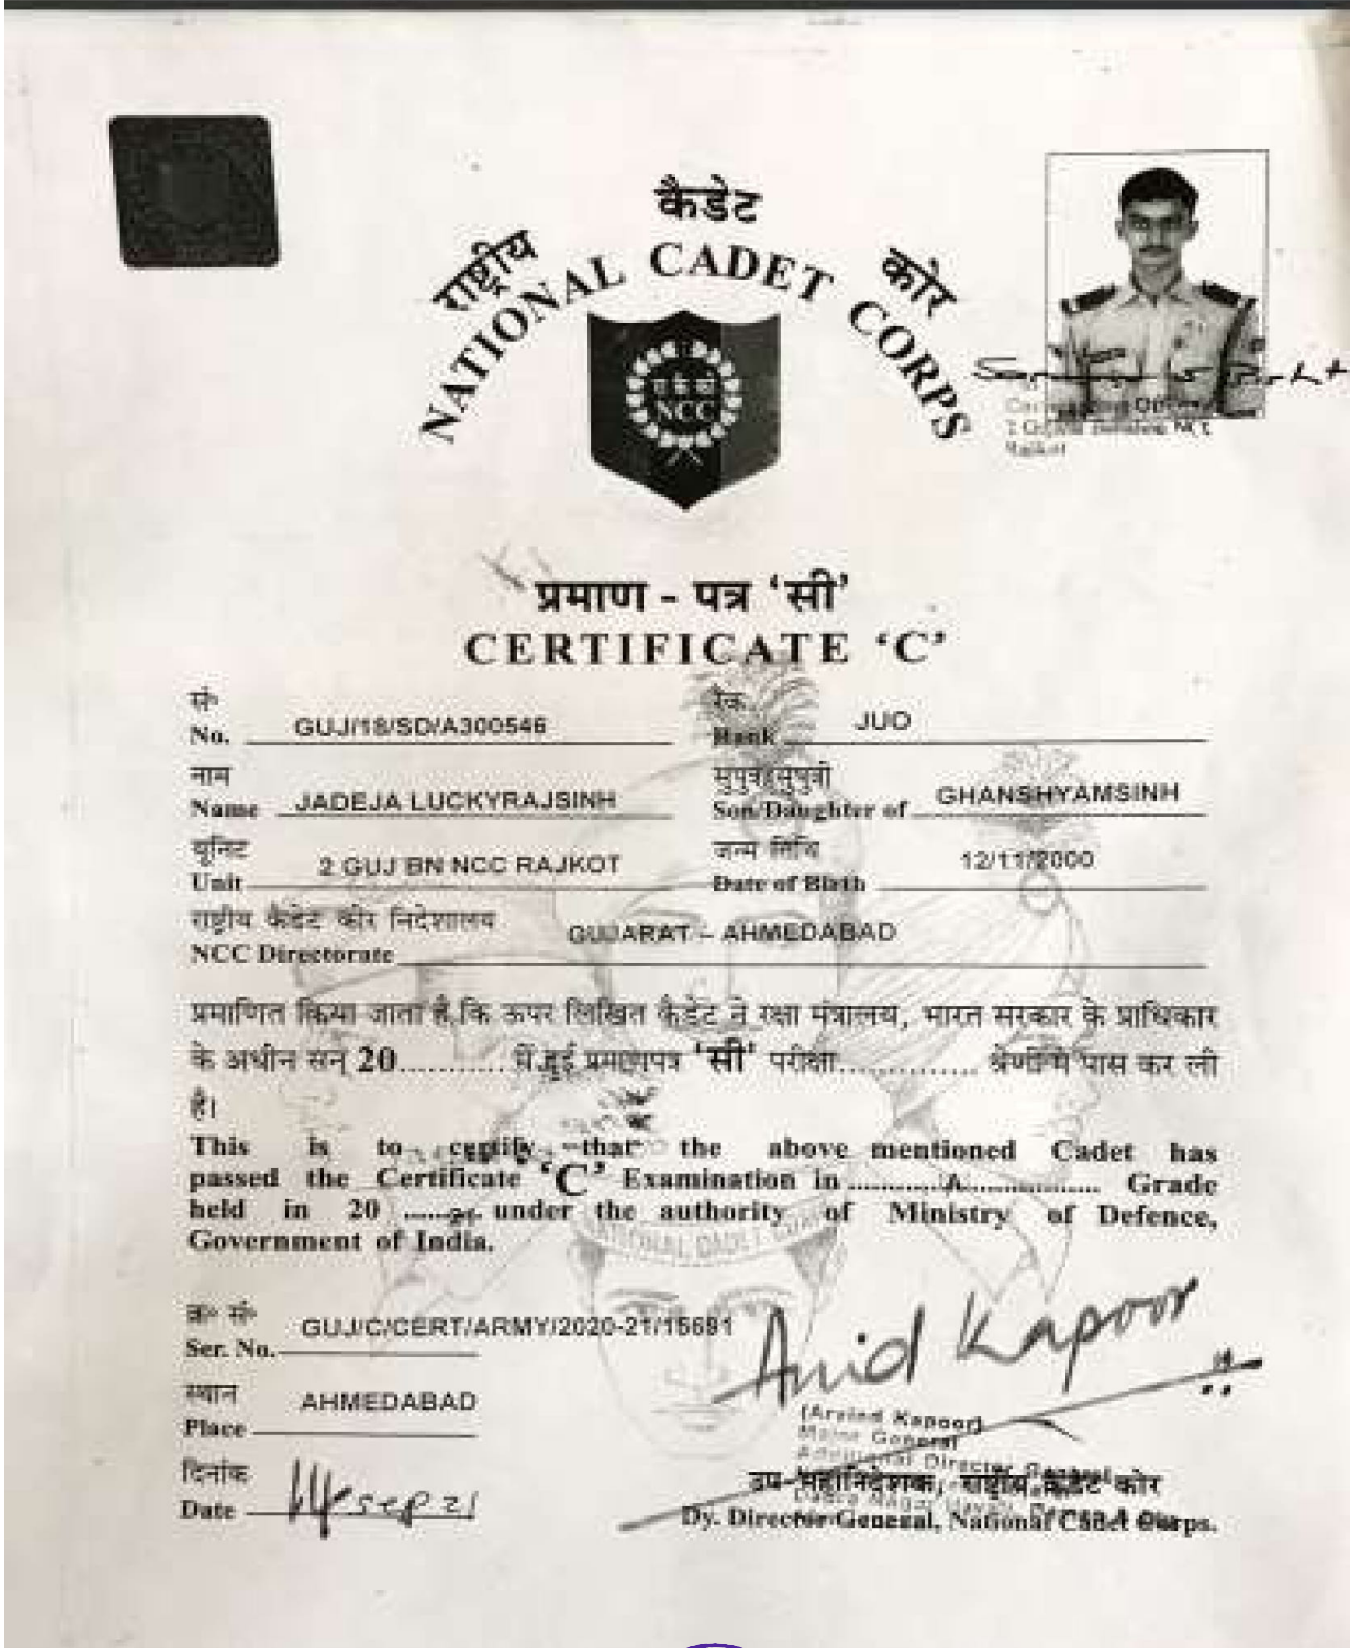 राष्ट्रीय कैडेट कोर
NATIONAL CADET CORPS
रा कै को
NCC
Rajkot
प्रमाण - पत्र ‘सी’
CERTIFICATE ‘C’
सं॰ रैंक
No. GUJ/18/SD/A300546 Rank JUO
नाम सुपुत्र/सुपुत्री
Name JADEJA LUCKYRAJSINH Son/Daughter of GHANSHYAMSINH
यूनिट जन्म तिथि
Unit 2 GUJ BN NCC RAJKOT Date of Birth 12/11/2000
राष्ट्रीय कैडेट कोर निदेशालय
NCC Directorate GUJARAT – AHMEDABAD
प्रमाणित किया जाता है कि ऊपर लिखित कैडेट ने रक्षा मंत्रालय, भारत सरकार के प्राधिकार
के अधीन सन् 20............ में हुई प्रमाणपत्र ‘सी’ परीक्षा................ श्रेणी में पास कर ली
है।
This is to certify that the above mentioned Cadet has
passed the Certificate ‘C’ Examination in ............A................. Grade
held in 20 ......21. under the authority of Ministry of Defence,
Government of India.
NATIONAL CADET
क्र॰ सं॰
Ser. No. GUJ/C/CERT/ARMY/2020-21/15691
Arvid Kapoor
स्थान
Place AHMEDABAD
(Arvind Kapoor)
Major General
Additional Director General
दिनांक
Date Sep 21
उप-महानिदेशक, राष्ट्रीय कैडेट कोर
Dy. Director General, National Cadet Corps.